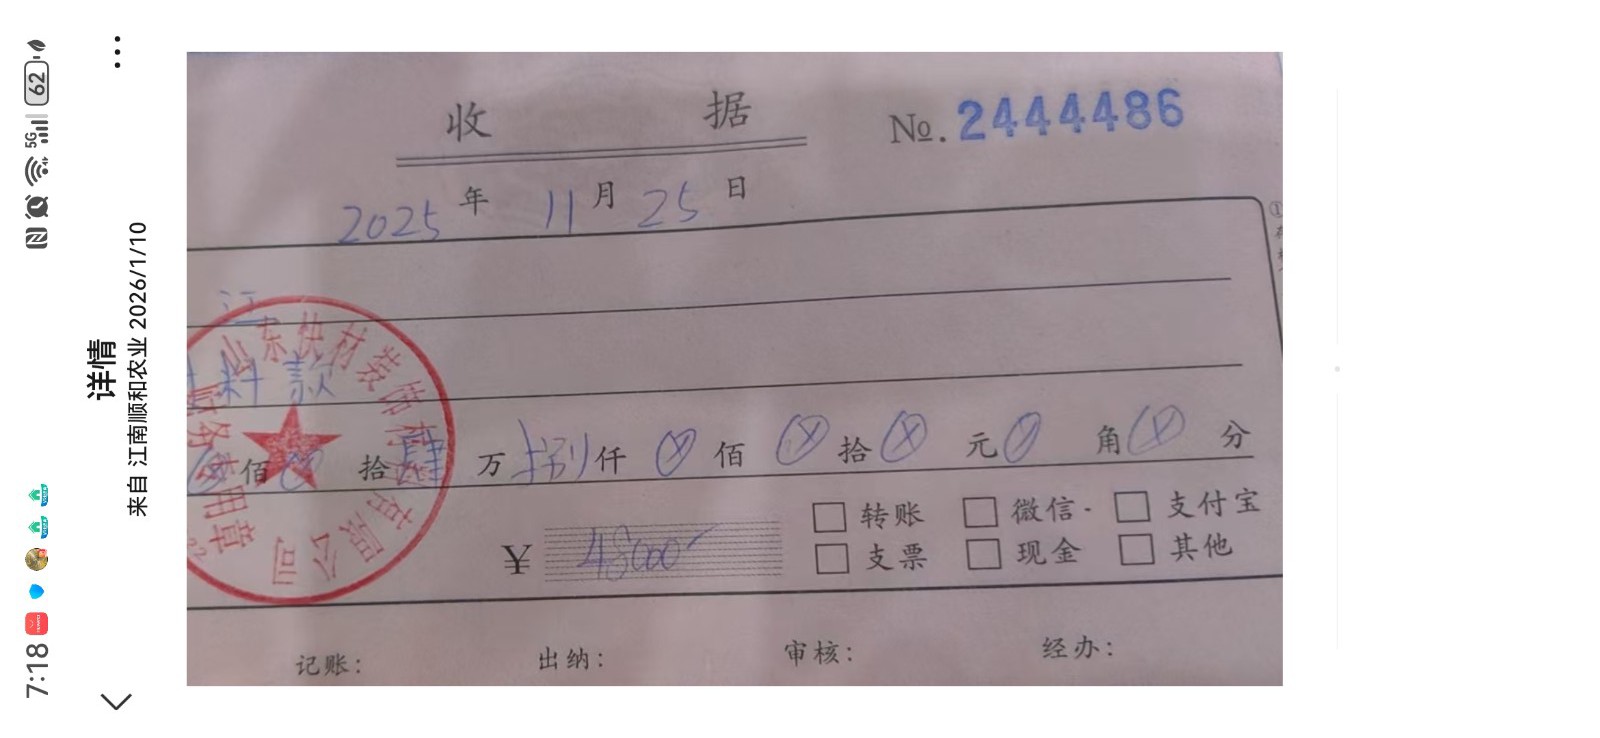 7:18
5G
62
详情
来自 江南顺和农业 2026/1/10
收 据
No. 2444486
2025 年 11 月 25 日
江
料款
佰 拾 肆 万 捌 仟 ⊗ 佰 ⊗ 拾 ⊗ 元 ⊗ 角 ⊗ 分
东快材装饰
公司
务专用章
¥ 48000
□ 转账 □ 微信 □ 支付宝
□ 支票 □ 现金 □ 其他
记账: 出纳: 审核: 经办: